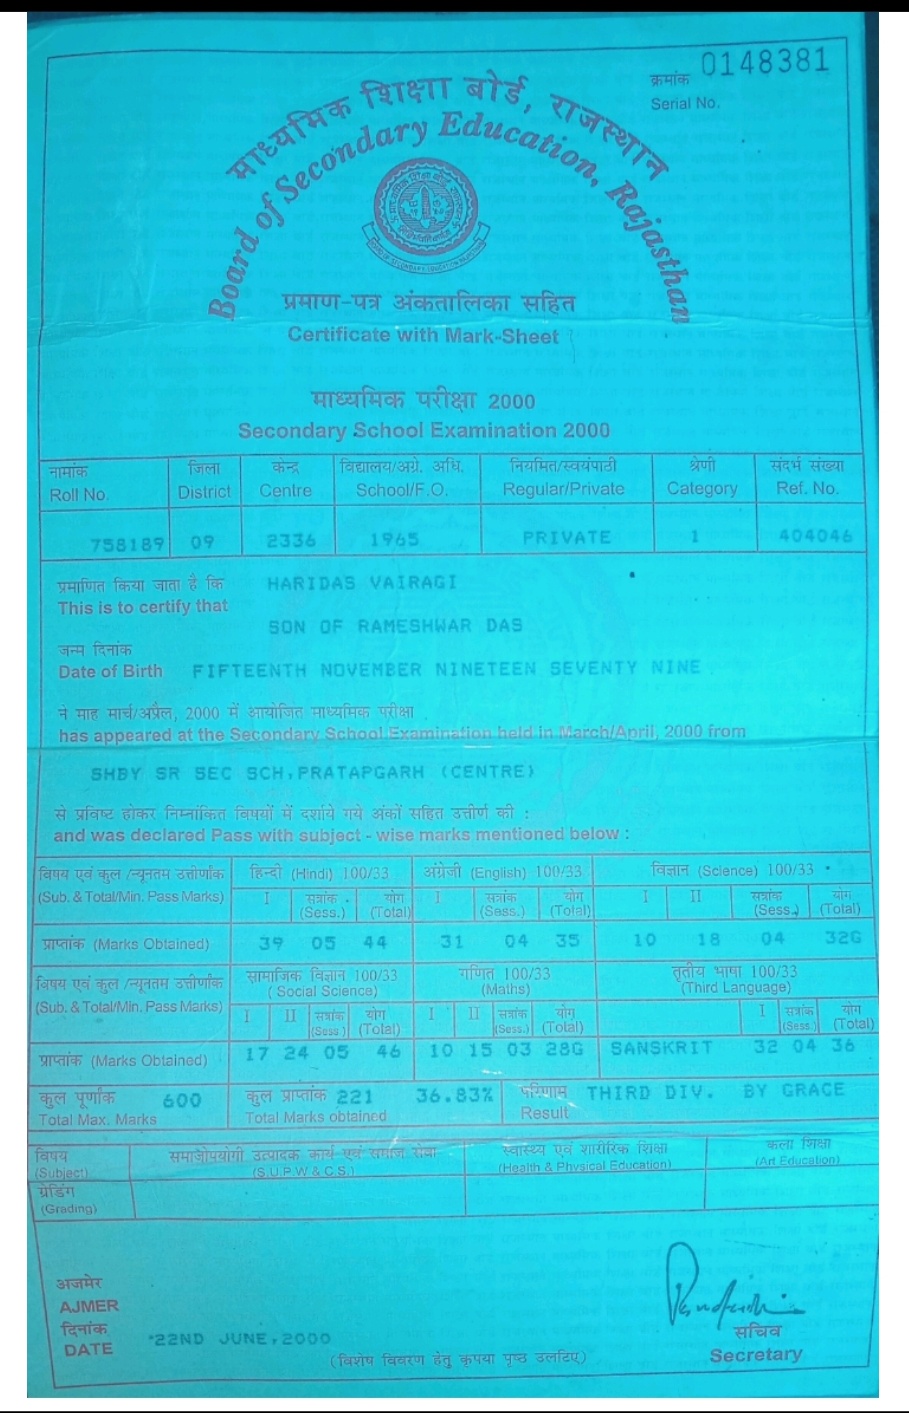 क्रमांक 0148381
Serial No.
माध्यमिक शिक्षा बोर्ड, राजस्थान
Board of Secondary Education, Rajasthan
प्रमाण-पत्र अंकतालिका सहित
Certificate with Mark-Sheet
माध्यमिक परीक्षा 2000
Secondary School Examination 2000
नामांक जिला केन्द्र विद्यालय/अग्रे. अधि. नियमित/स्वयंपाठी श्रेणी संदर्भ संख्या
Roll No. District Centre School/F.O. Regular/Private Category Ref. No.
758189 09 2336 1965 PRIVATE 1 404046
प्रमाणित किया जाता है कि HARIDAS VAIRAGI
This is to certify that
SON OF RAMESHWAR DAS
जन्म दिनांक
Date of Birth FIFTEENTH NOVEMBER NINETEEN SEVENTY NINE
ने माह मार्च/अप्रैल, 2000 में आयोजित माध्यमिक परीक्षा
has appeared at the Secondary School Examination held in March/April, 2000 from
SHBY SR SEC SCH,PRATAPGARH (CENTRE)
से प्रविष्ट होकर निम्नांकित विषयों में दर्शाये गये अंकों सहित उत्तीर्ण की :
and was declared Pass with subject - wise marks mentioned below :
विषय एवं कुल /न्यूनतम उत्तीर्णांक हिन्दी (Hindi) 100/33 अंग्रेजी (English) 100/33 विज्ञान (Science) 100/33
(Sub. & Total/Min. Pass Marks) I सत्रांक योग I सत्रांक योग I II सत्रांक योग
(Sess.) (Total) (Sess.) (Total) (Sess.) (Total)
प्राप्तांक (Marks Obtained) 39 05 44 31 04 35 10 18 04 32G
विषय एवं कुल /न्यूनतम उत्तीर्णांक सामाजिक विज्ञान 100/33 गणित 100/33 तृतीय भाषा 100/33
(Sub. & Total/Min. Pass Marks) (Social Science) (Maths) (Third Language)
I II सत्रांक योग I II सत्रांक योग I सत्रांक योग
(Sess.) (Total) (Sess.) (Total) (Sess.) (Total)
प्राप्तांक (Marks Obtained) 17 24 05 46 10 15 03 28G SANSKRIT 32 04 36
कुल पूर्णांक 600 कुल प्राप्तांक 221 36.83% परिणाम THIRD DIV. BY GRACE
Total Max. Marks Total Marks obtained Result
विषय समाजोपयोगी उत्पादक कार्य एवं समाज सेवा स्वास्थ्य एवं शारीरिक शिक्षा कला शिक्षा
(Subject) (S.U.P.W & C.S.) (Health & Physical Education) (Art Education)
ग्रेडिंग
(Grading)
अजमेर
AJMER
दिनांक
DATE 22ND JUNE,2000
सचिव
Secretary
(विशेष विवरण हेतु कृपया पृष्ठ उलटिए)